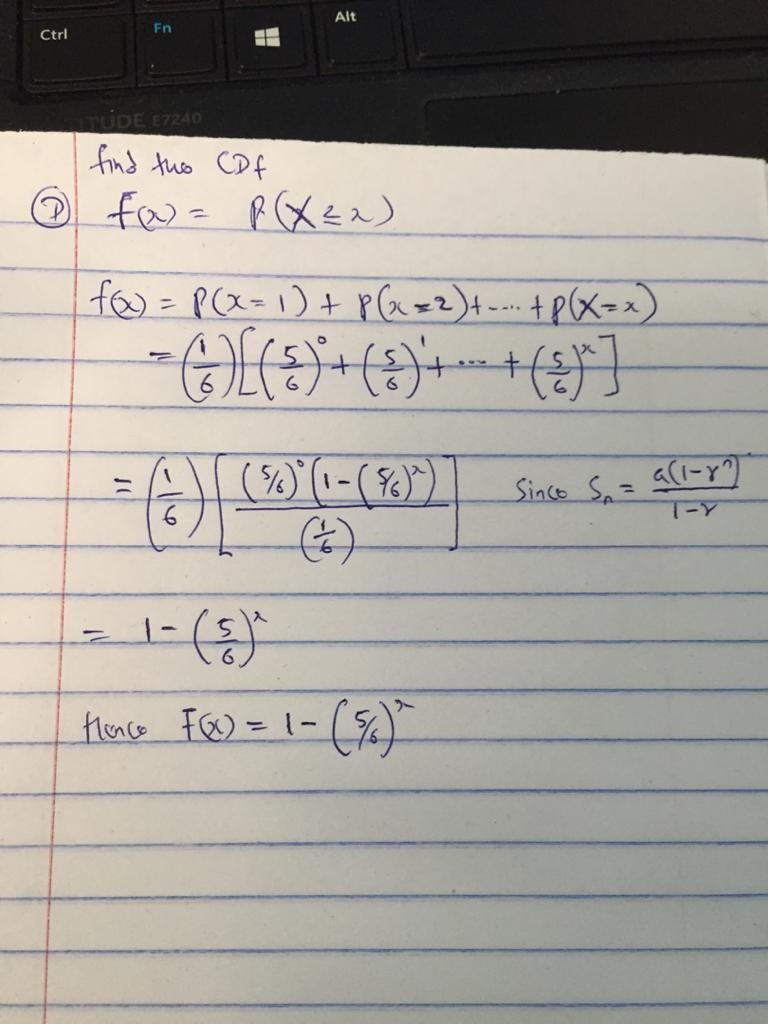 Ctrl Fn Alt
TUDE E7240
find the CDF
① F(x) = P(X ≤ x)
f(x) = P(x = 1) + P(x = 2) + .... + P(X = x)
= (1/6) [ (5/6)^0 + (5/6)^1 + ... + (5/6)^x ]
= (1/6) [ (5/6)^0 (1 - (5/6)^x) / (1/6) ] Since S_n = a(1-r^n) / 1-r
= 1 - (5/6)^x
Hence F(x) = 1 - (5/6)^x